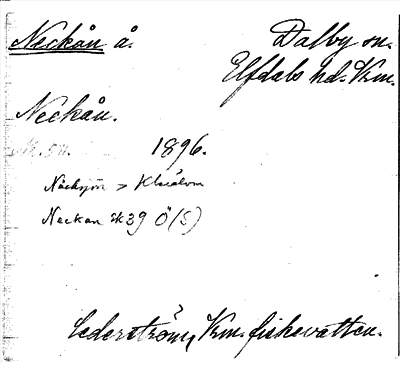 Neckån å.
Dalby sn.
Elfdals hd. Vrm.
Neckån.
1896.
Näcksjön > Klarälven
Neckan sk 39 Ö (S)
Cederström, Vrm. fiskevatten.